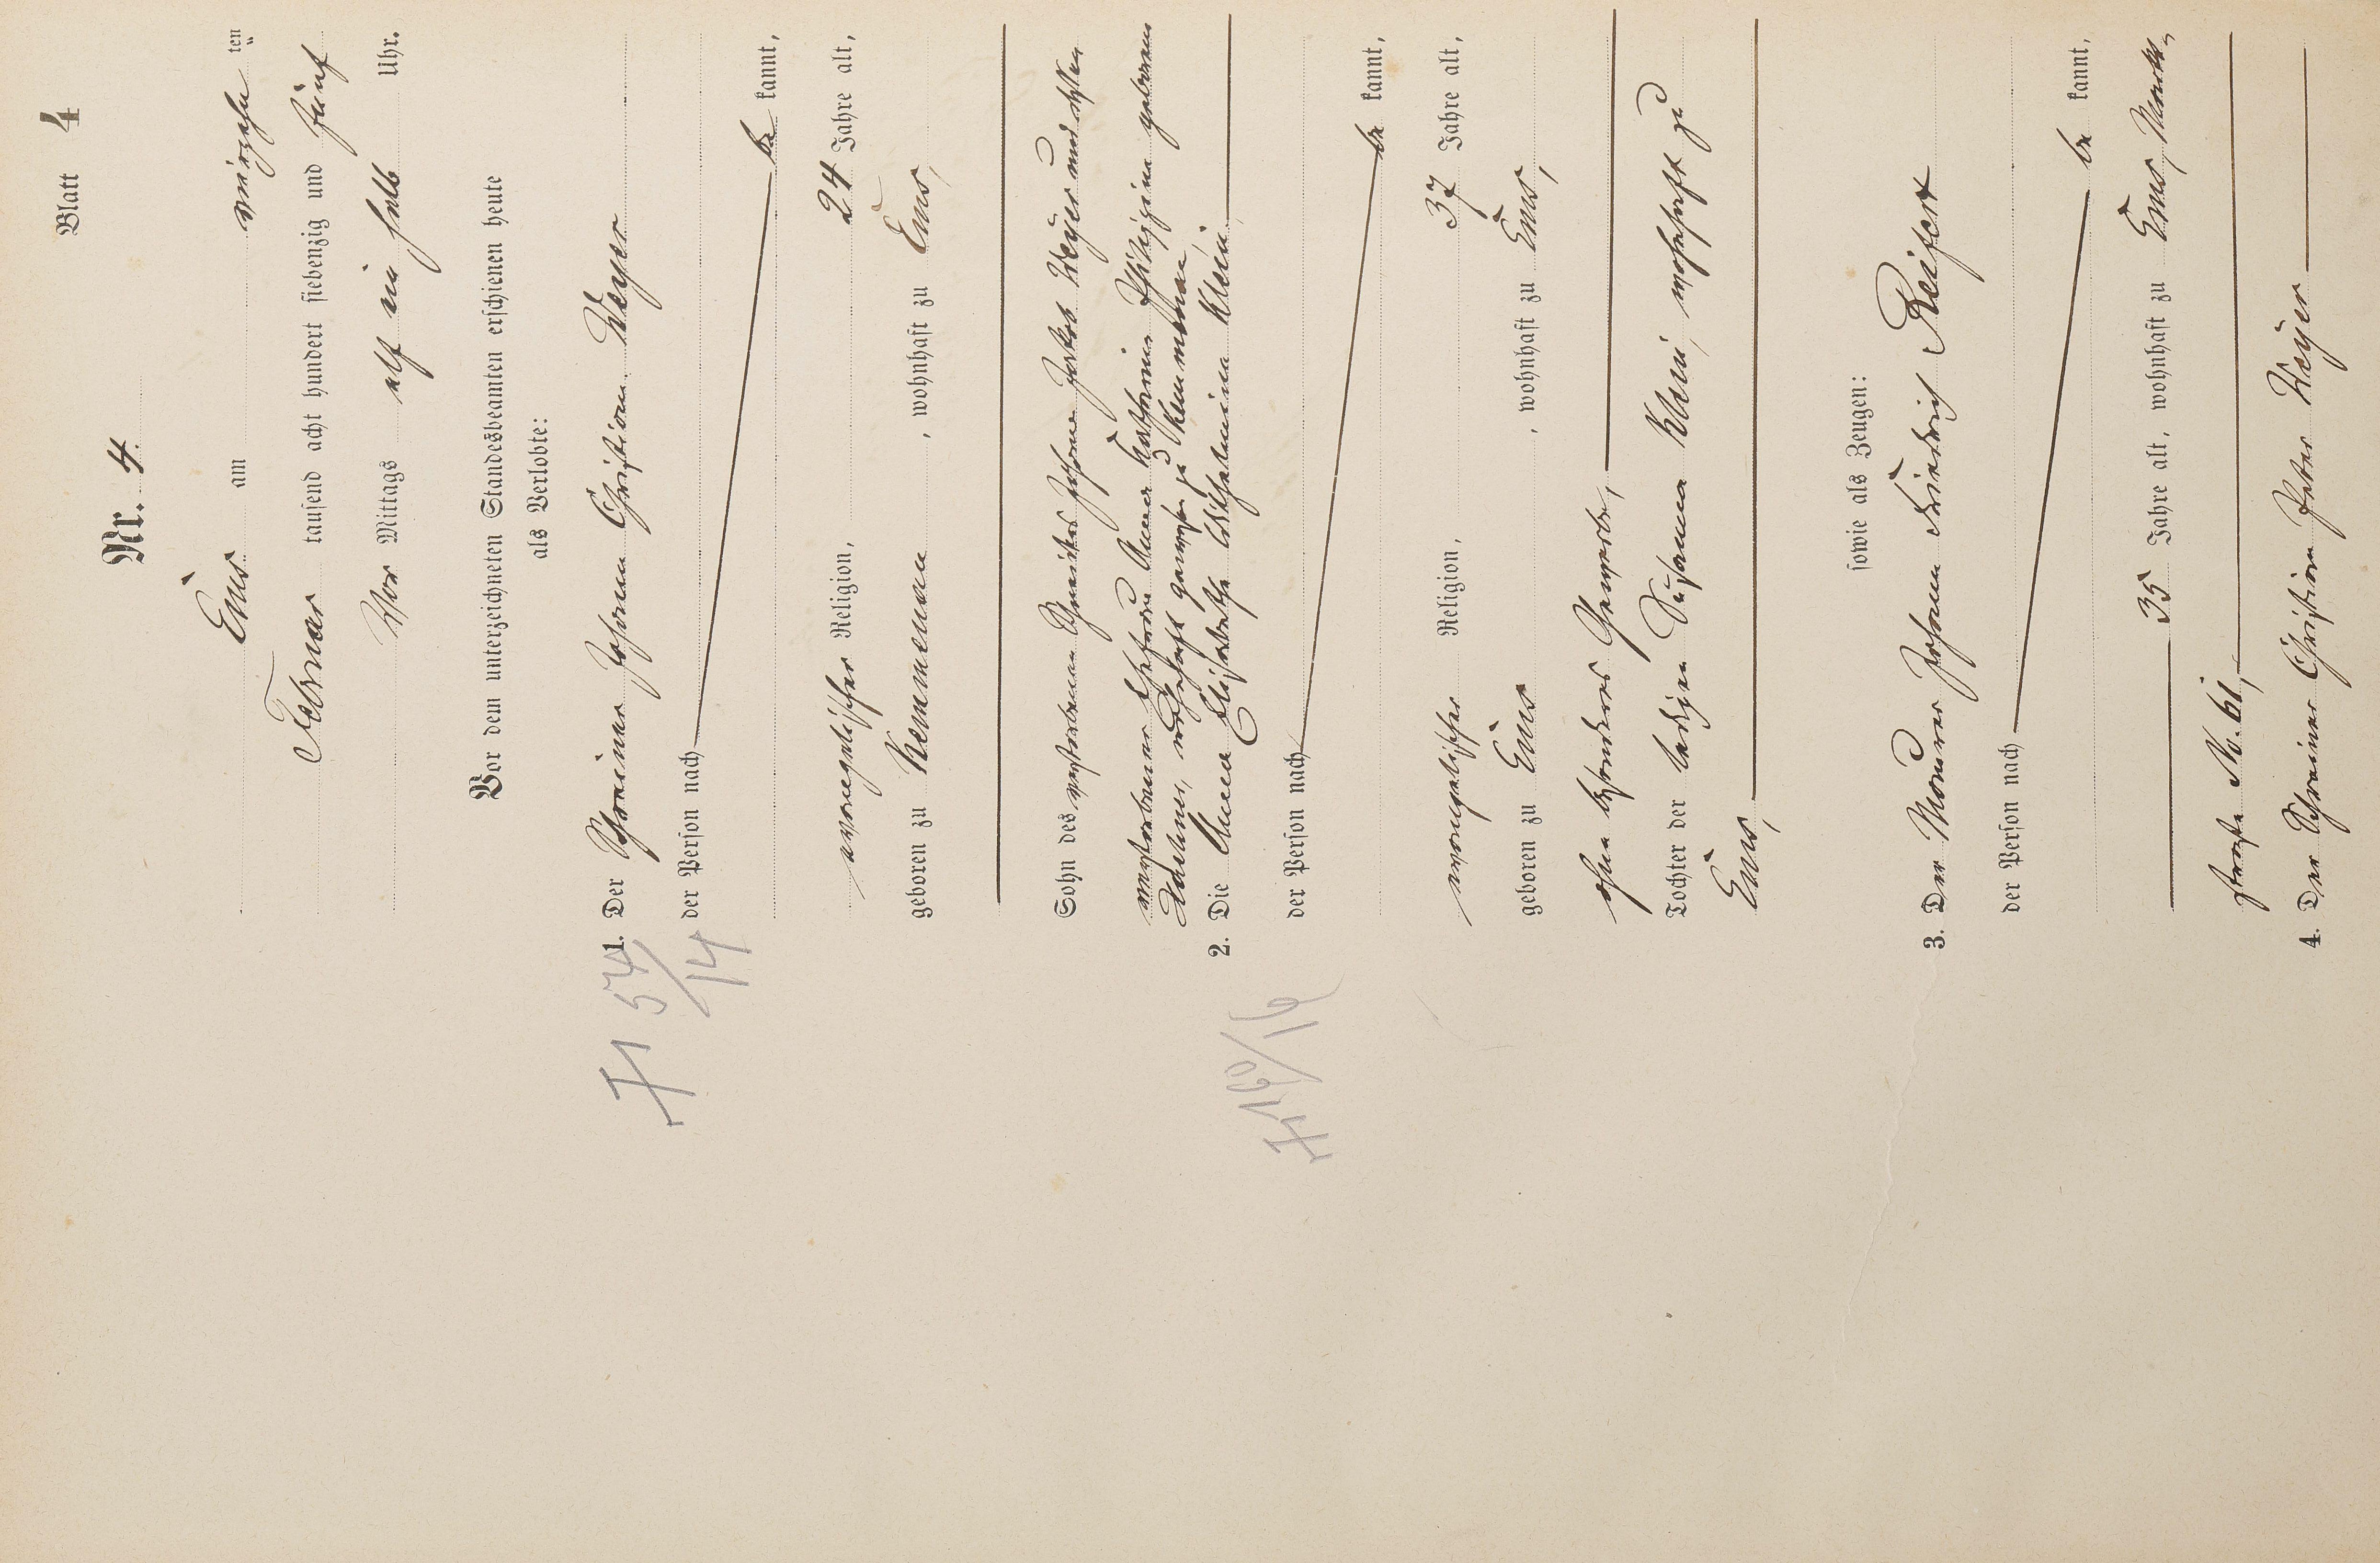 Blatt 4
Nr. 4.
Ems am vierzehn ten
Februar tausend acht hundert siebenzig und fünf
Vor Mittags elf ein halb Uhr.
Vor dem unterzeichneten Standesbeamten erschienen heute
als Verlobte:
1. Der Schreiner Johann Christian Weyer
der Person nach
be kannt,
evangelischer Religion, 24 Jahre alt,
geboren zu Kemmenau, wohnhaft zu Ems,
Sohn des verstorbenen Johann Jakob Weyer und dessen
verstorbener Ehefrau Anna Katharina Philippine geborene
wohnhaft gewesen zu Kemmenau,
2. Die Anna Elisabetha Wilhelmina Klein
der Person nach
be kannt,
evangelischer Religion, 37 Jahre alt,
geboren zu Ems, wohnhaft zu Ems,
ohne besonderes Gewerbe,
Tochter der ledigen Susanna Klein, wohnhaft zu
Ems,
sowie als Zeugen:
3. Der Maurer Johann Friedrich Reifert
der Person nach
be kannt,
35 Jahre alt, wohnhaft zu Ems, Markt-
straße No. 61,
4. Der Schreiner Christian Peter Weyer
71 54/14
71 60/16